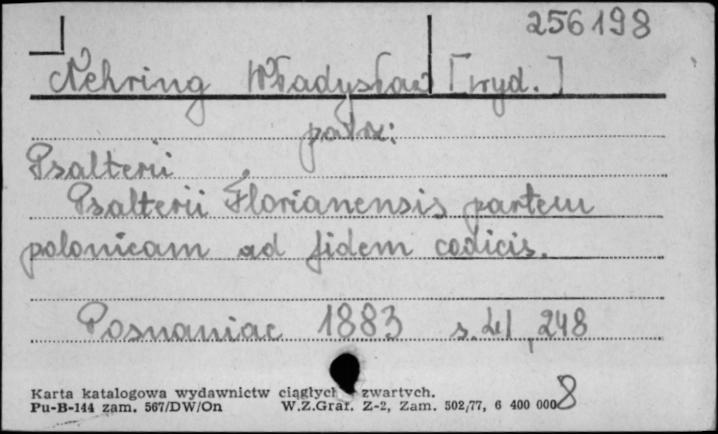 256198
Nehring Władysław [wyd.]
patrz:
Psalterii
Psalterii Florianensis partem
polonicam ad fidem codicis.
Posnaniae 1883 s. 248
Karta katalogowa wydawnictw ciągłych zwartych.
Pu-B-144 zam. 567/DW/On W.Z.Graf. Z-2, Zam. 502/77, 6 400 000
8